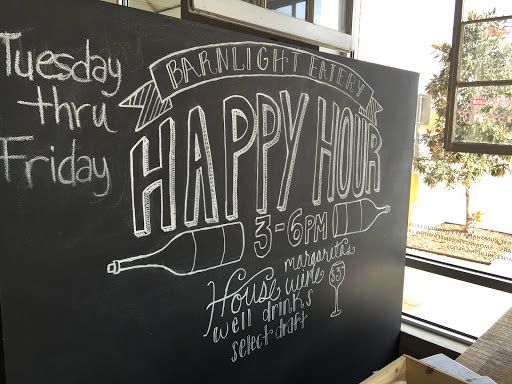 Tuesday
thru
Friday
BARNLIGHT EATERY
HAPPY HOUR
3-6PM
margaritas
House wine
$3
well drinks
select draft